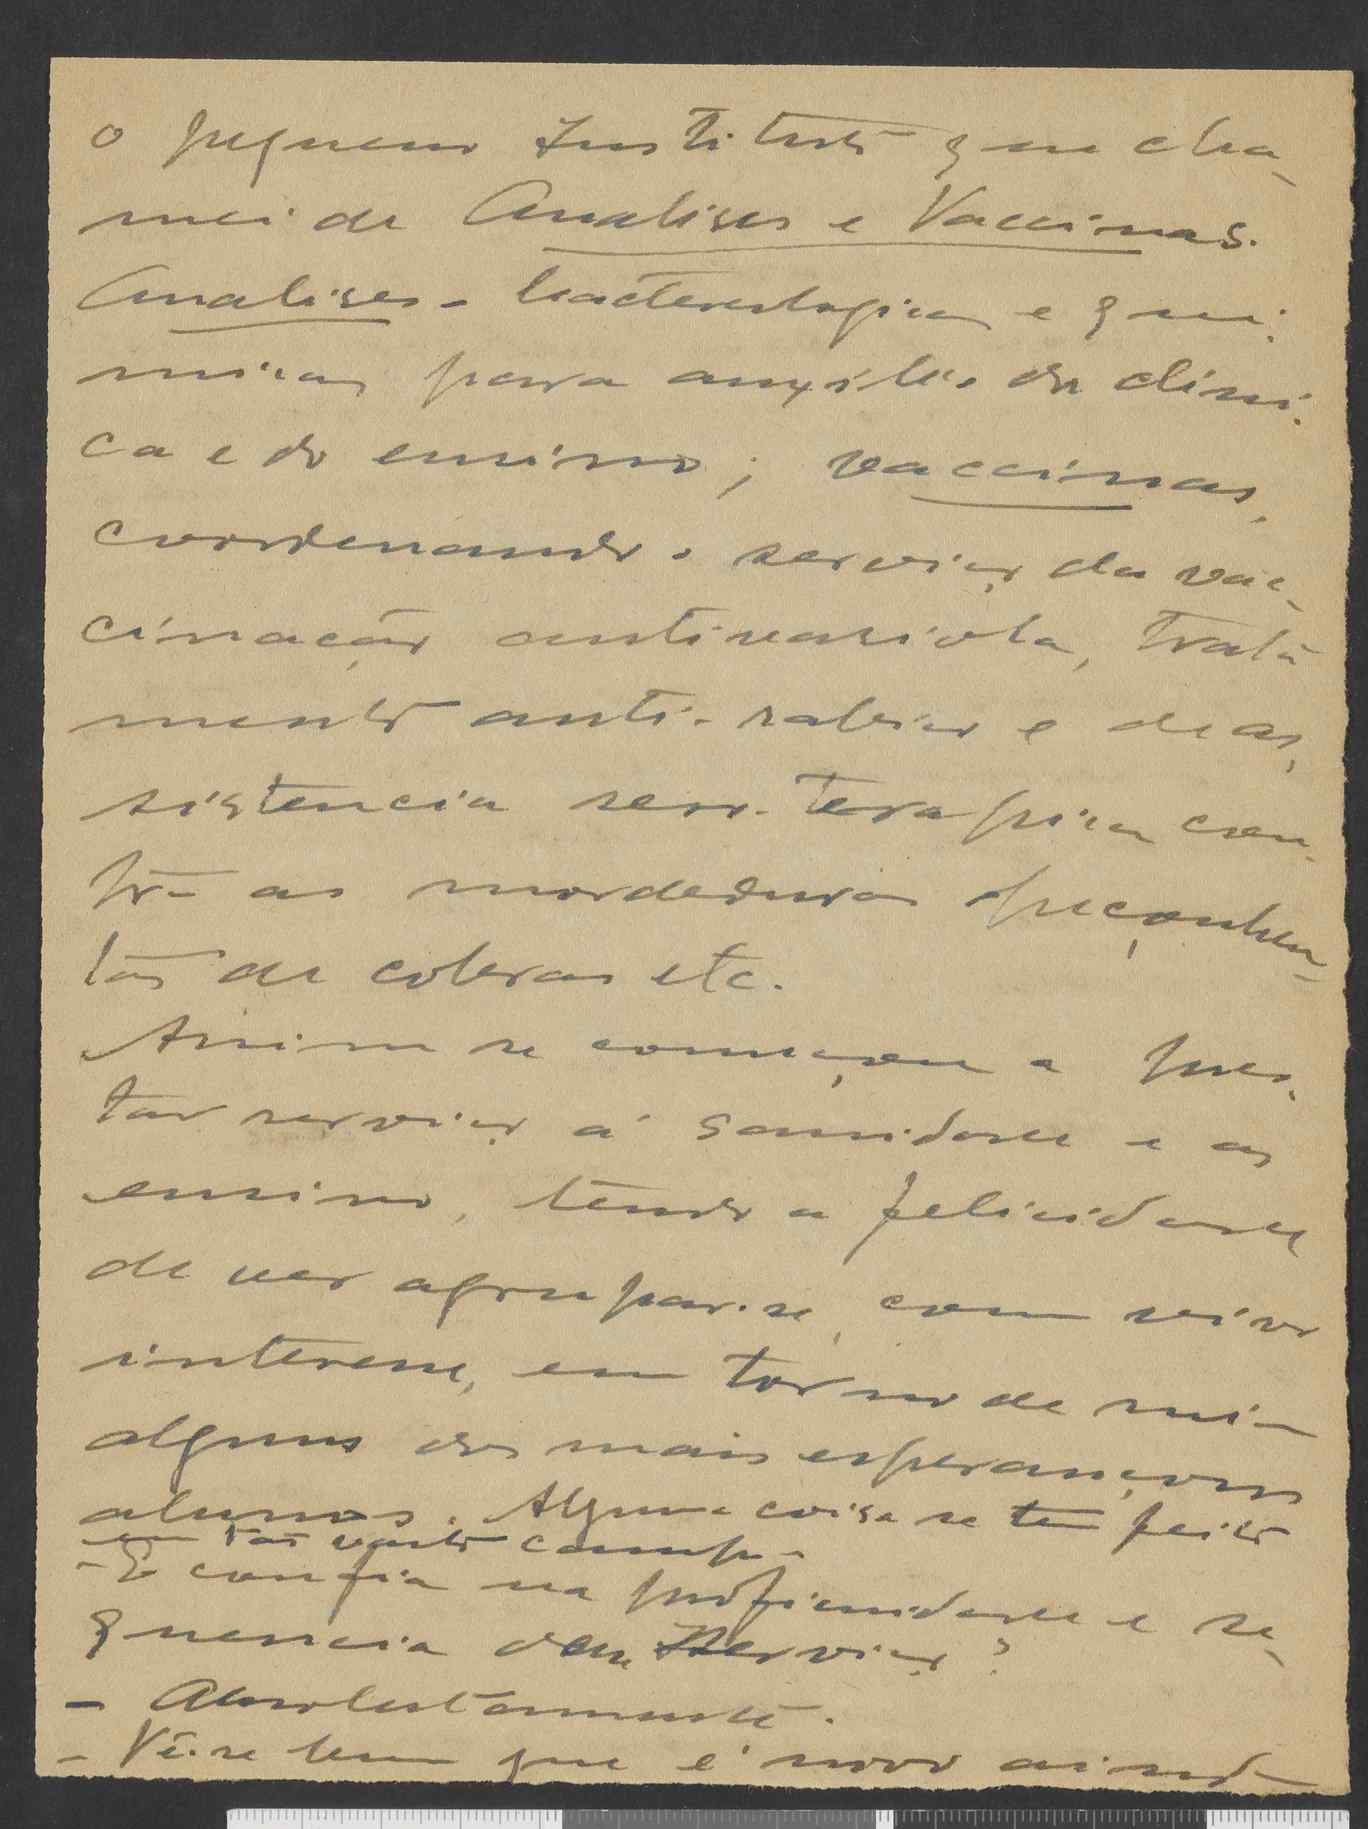 o pequeno Instituto que cha-
mei de Analises e Vaccinas.
Analises - bacterologicas e qui-
micas para auxilio da clini-
ca e do ensino; vaccinas,
coordenando o serviço da vac-
cinação antivariola, trata-
mento anti-rabico e de as-
sistencia sero-terapica con-
tra as mordeduras peçonhen-
tas de cobras etc.
Assim se começou a pres-
tar serviço á sanidade e ao
ensino, tendo a felicidade
de ver agrupar-se, com vivo
interesse, em torno de mim
alguns dos mais esperançosos
alunos. Alguma coisa se tem feito
em tão vasto campo.
- E confia na proficuidade e se-
quencia desse Serviço?
- Absolutamente.
- Vê-se bem que é novo ainda